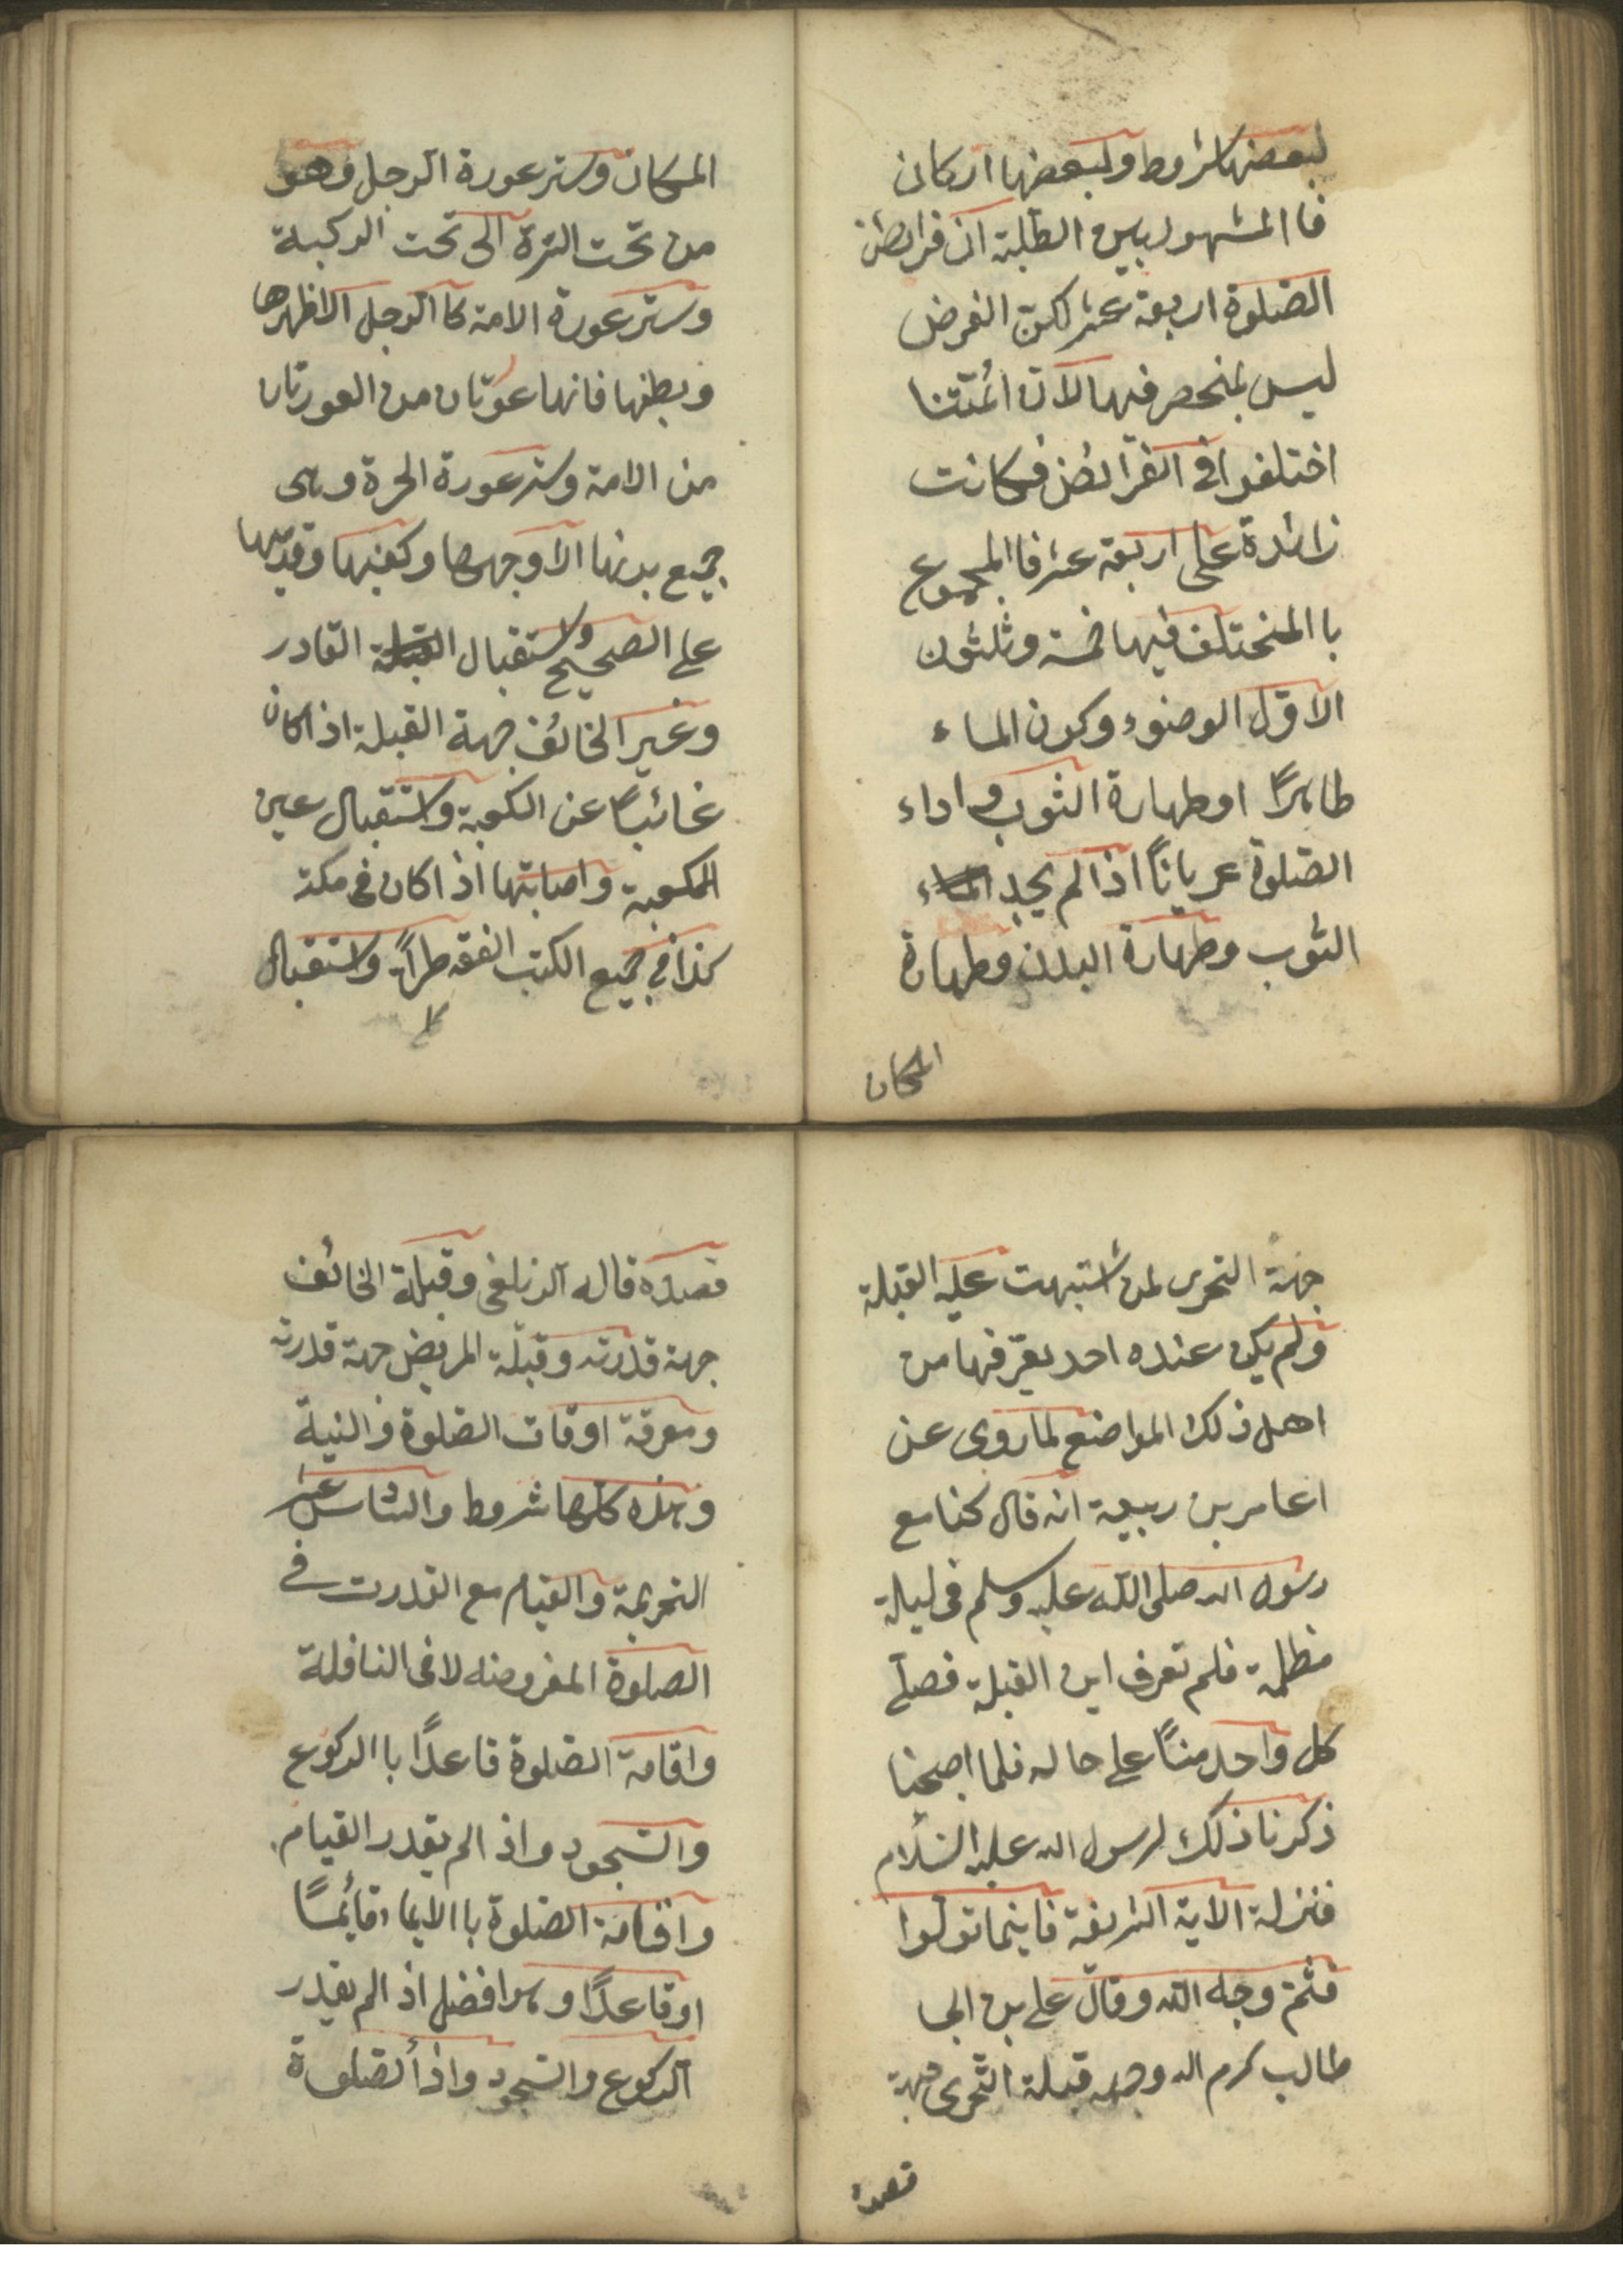 لبعضها شروط ولبعضها اركان
فاالمشهور بين الطلبة ان فرائض
الصّلوة اربعة عشر لكن الفرض
ليس بمنحصر فيها لانّ ائمّتنا
اختلفوا فى الفرائض فكانت
زائدة على اربعة عشر فاالمجموع
باالمختلف فيها خمسة وثلثون
الاوّل الوضوء وكون الماء
طاهرًا اوطهارة الثوب واداء
الصّلوة عرياناً اذالم يجد الماء
الثوب وطهارة البدن وطهارة
المكان
المكان وستر عورة الرجل وهو
من تحت السّرة الى تحت الركبة
وستر عورة الامة كاالرجل الاظهرها
وبطنها فانها عورتان من العورتان
من الامة وستر عورة الحرة وهى
جميع بدنها الا وجهها وكفيها وقدميها
على الصحيح واستقبال القبلة القادر
وغير الخائف جهة القبلة اذاكان
غائباً عن الكعبة واستقبال عين
الكعبة واصابتها اذاكان فى مكة
كذا فى جميع الكتب الفقه طراً واستقبال
جهة التحرى لمن اشتبهت عليه القبلة
ولم يكن عنده احد يعرّفها من
اهل ذلك المواضع لماروى عن
اعامر بن ربيعة انه قال كنا مع
رسول الله صلى الله عليه وسلم فى ليلة
مظلمة فلم تعرف اين القبلة فصلّى
كل واحد منّاً على حاله فلما اصبحنا
ذكرنا ذلك لرسول الله عليه السّلام
فنزلة الاية الشريفة فاينما تولّوا
فثمّ وجه الله وقال على بن ابى
طالب كرم الله وجهه قبلة التّحرى جهة
قصده
قصده قاله الزيلعى وقبلة الخائف
جهة قدرته وقبلة المريض جهة قدرته
ومعرفة اوقات الصّلوة والنية
وهذه كلها شروط والسّادس عشر
التحريمة والقيام مع القدرت فى
الصلوة المفروضه لافى النافلة
واقامة الصّلوة قاعدًا باالركوع
والسّجود واذالم يقدر القيام
واقامة الصّلوة باالايماء قائمًا
اوقاعدًا وهوافضل اذالم يقدر
الركوع والسّجود واذا الصّلوة